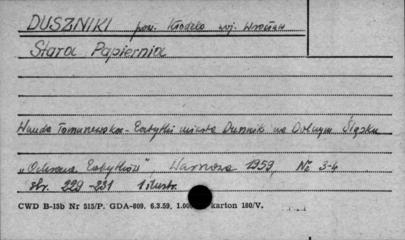 DUSZNIKI pow. Kłodzko woj. Wrocław
Stara Papiernia
Wanda Tomaszewska - Zabytki miasta Dusznik na Dolnym Śląsku
"Ochrona Zabytków", Warszawa 1959, Nr 3-4
str. 229-231 ilustr.
CWD B-15b Nr 515/P. GDA-809. 6.3.59, 1.00 karton 180/V.